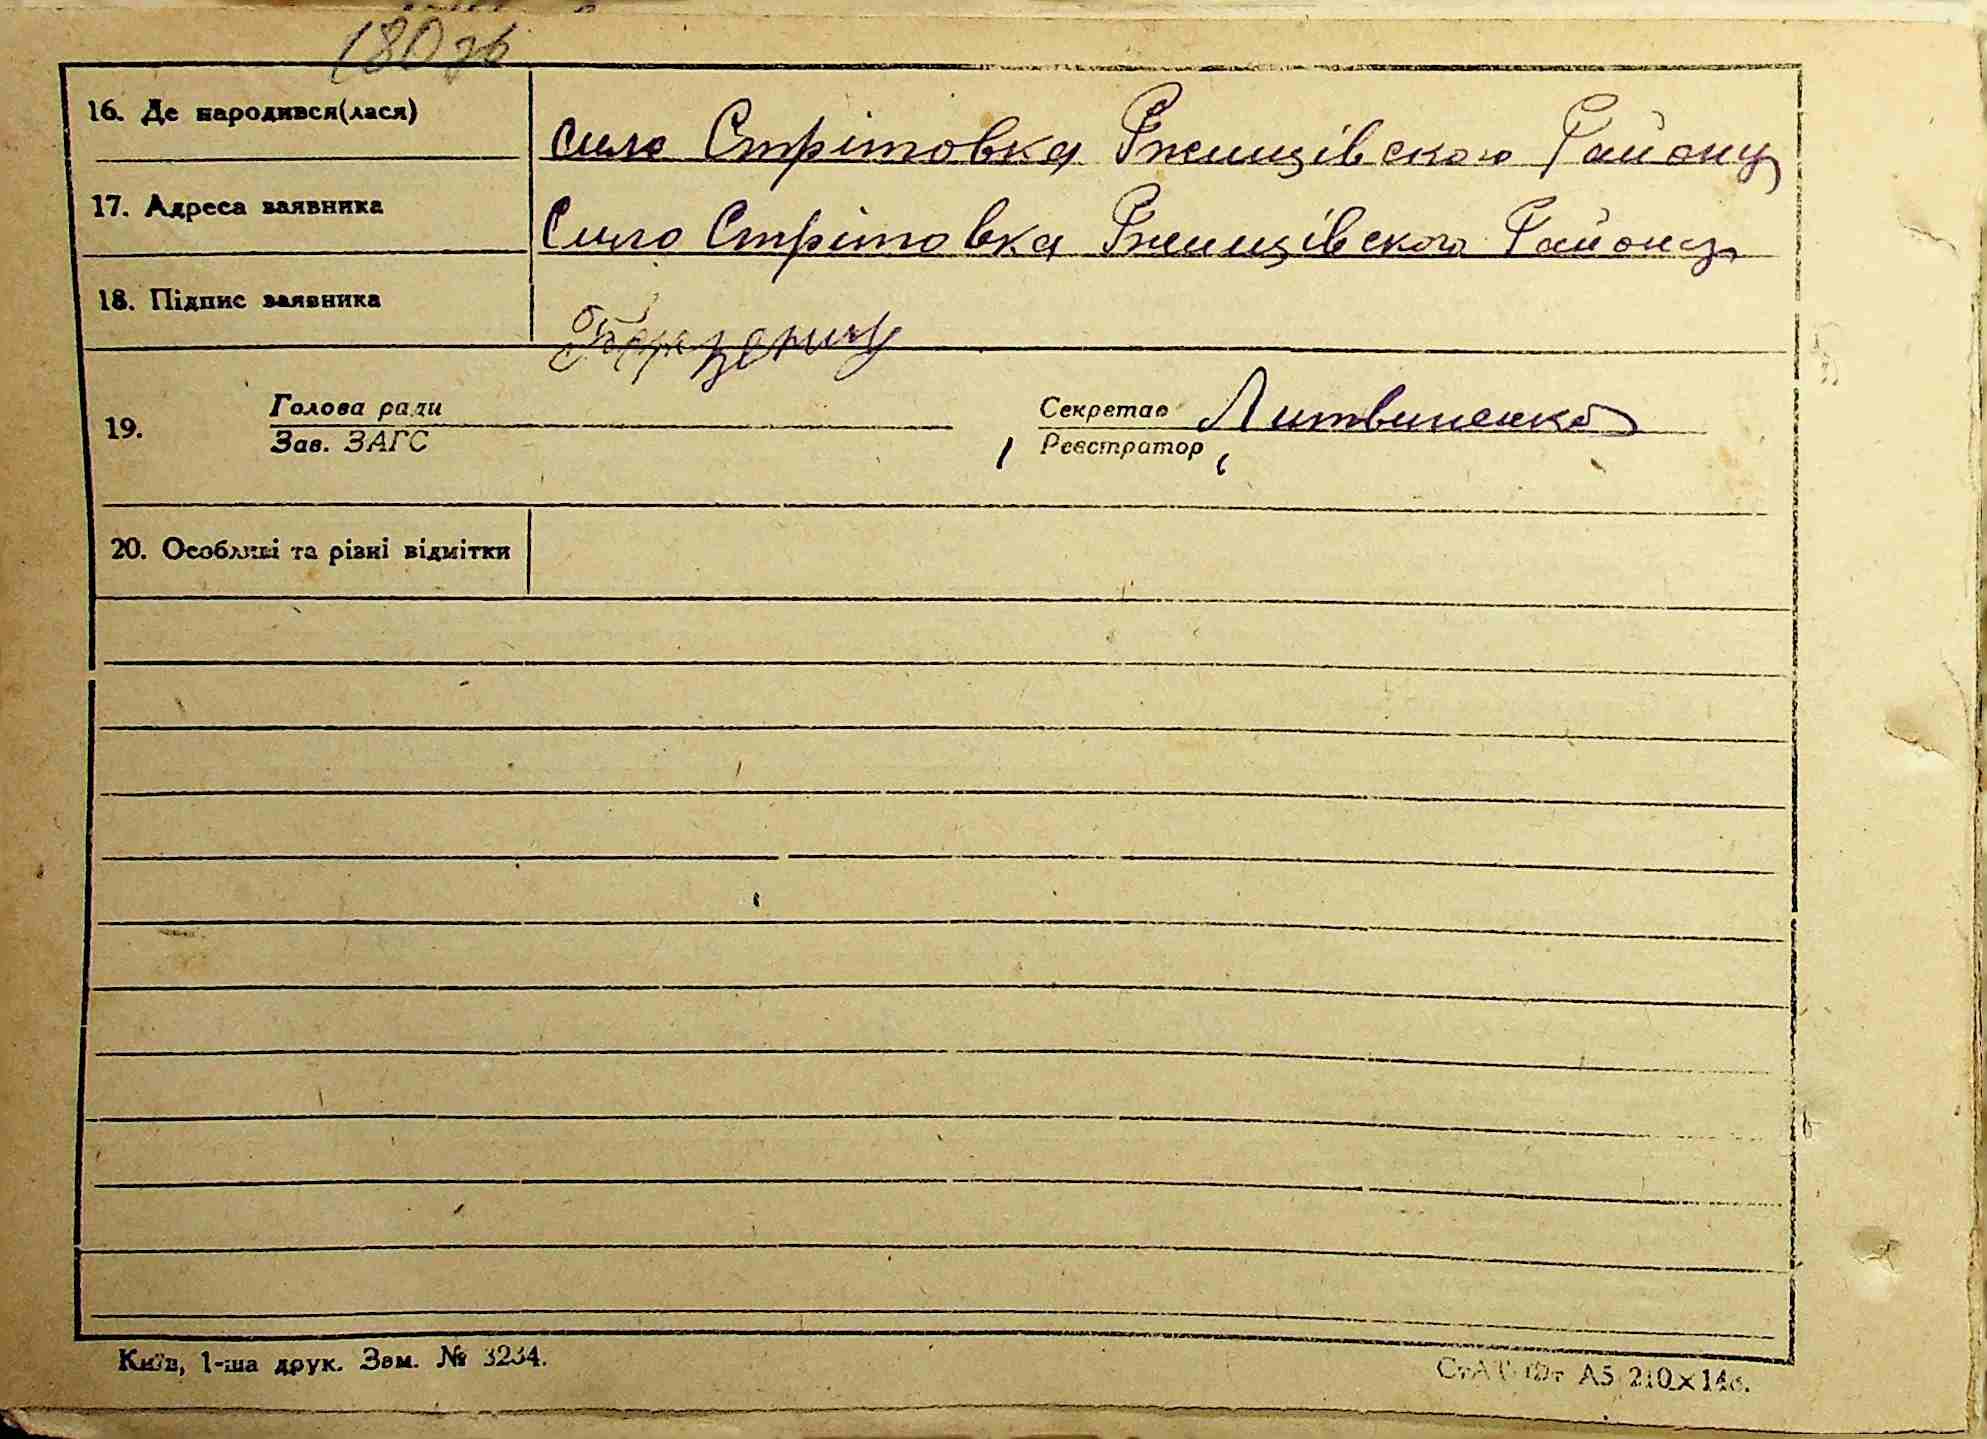 180 зв
16. Де народився(лася) село Стрітовка Ржищівского Району
17. Адреса заявника Село Стрітовка Ржищівского Району
18. Підпис заявника
19. Голова ради Секретар Литвиненко
Зав. ЗАГС Реєстратор
20. Особливі та різні відмітки
Київ, 1-ша друк. Зам. № 3234. А5 210×148.